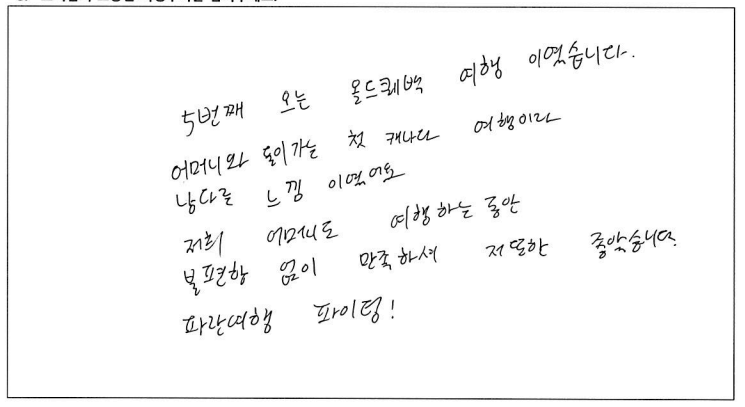 5번째 오는 올드퀘백 여행 이였습니다.
어머니와 둘이가는 첫 캐나다 여행이라
남다른 느낌 이였어요
저희 어머니도 여행하는 동안
불편함 없이 만족하셔 저 또한 좋았습니다.
파란여행 파이팅!